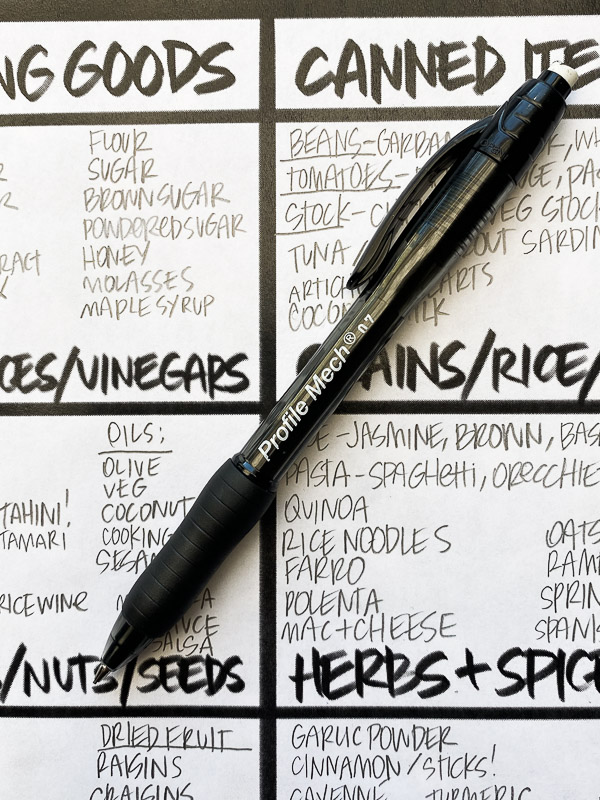 NG GOODS
FLOUR
SUGAR
BROWN SUGAR
POWDERED SUGAR
HONEY
MOLASSES
MAPLE SYRUP
RACT
CANNED ITE
BEANS-GARBAN
TOMATOES-
STOCK- VEG STOCK
TUNA OUT SARDIN
ARTICH ARTS
COCO ILK
CES/VINEGARS
OILS:
OLIVE
VEG
COCONUT
COOKING
SESAM
TAHINI!
TAMARI
RICE WINE
SAUCE
SALSA
AINS/RICE/
-JASMINE, BROWN, BAS
PASTA-SPAGHETTI, ORECCHIE
QUINOA
RICE NOODLES
FARRO
POLENTA
MAC+CHEESE
OATS
RAM
SPRIN
SPAN
Profile Mech® 0.7
/NUTS/SEEDS
DRIED FRUIT
RAISINS
CRAISINS
HERBS + SPICE
GARLIC POWDER
CINNAMON/STICKS!
CAYENNE, TURMERIC